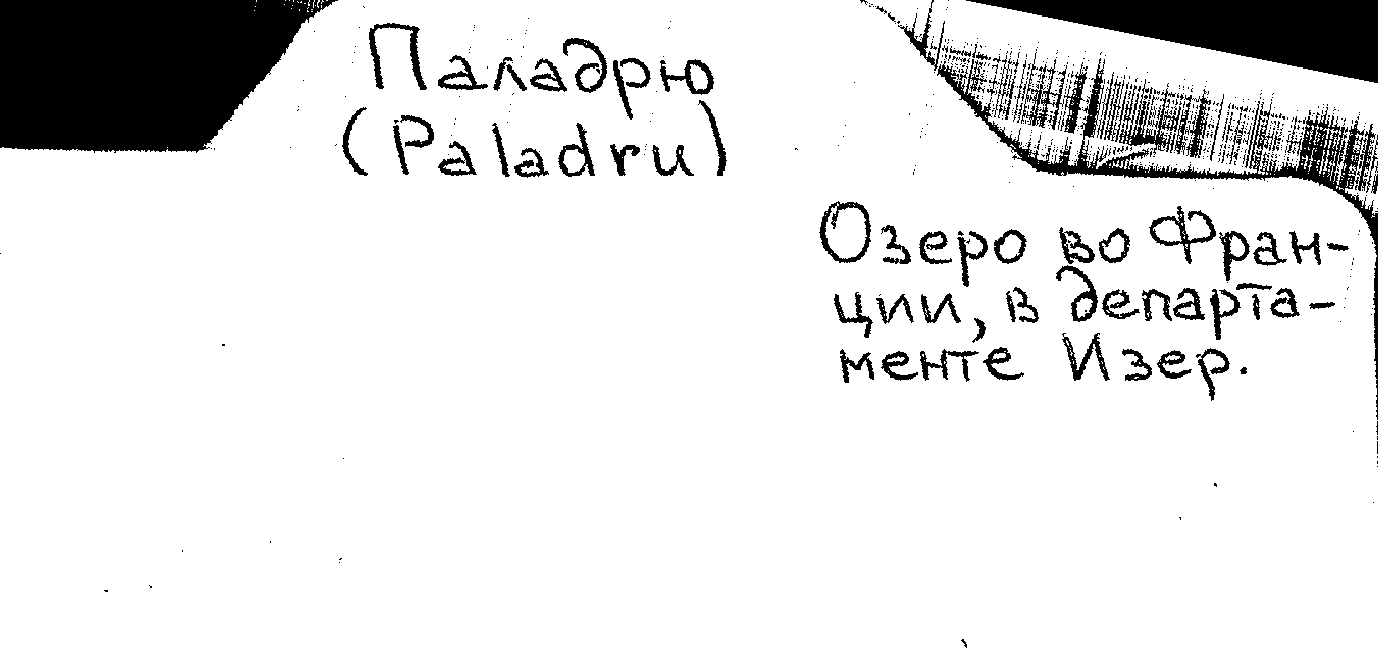 Паладрю
(Paladru)
Озеро во Фран-
ции, в департа-
менте Изер.